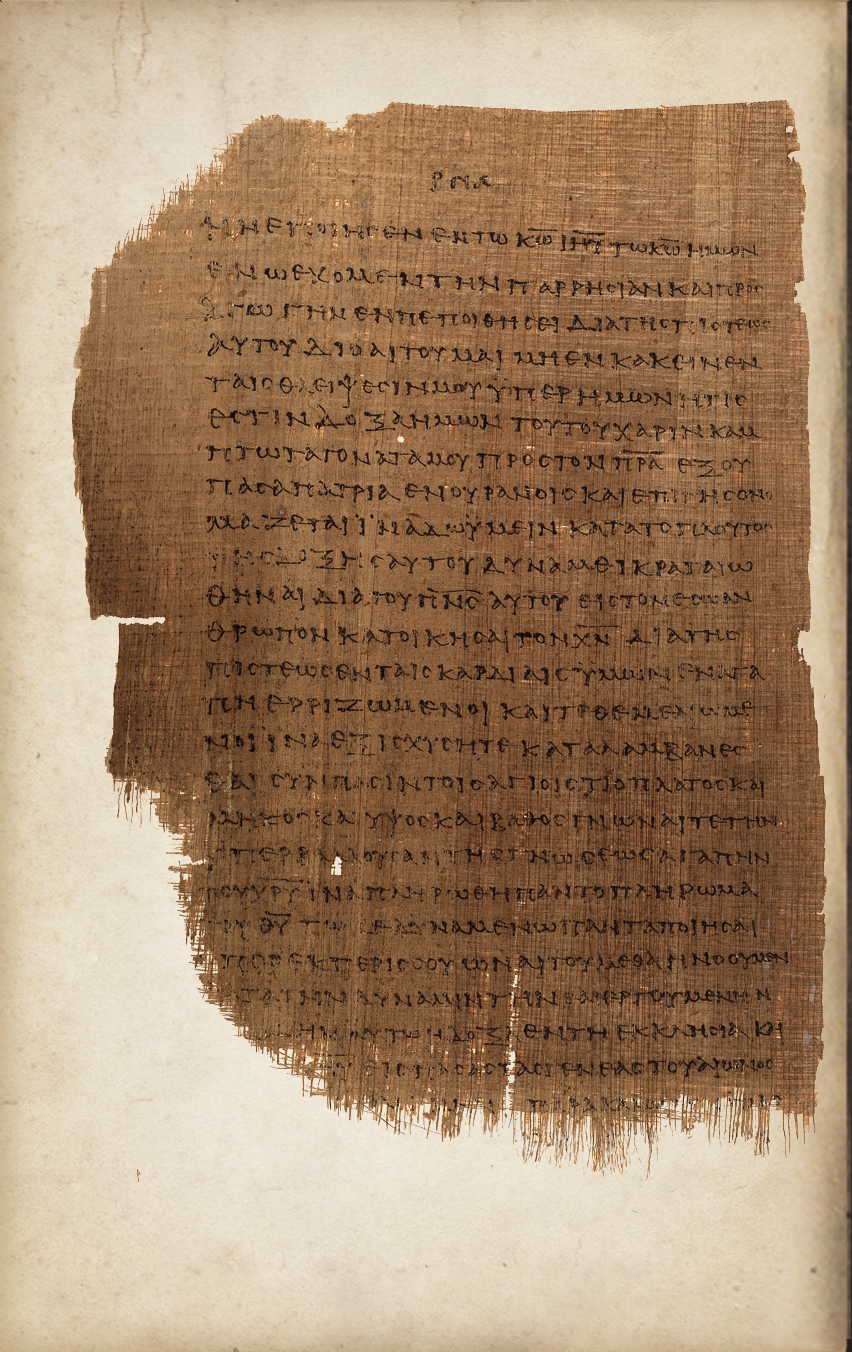 ΡΝΑ
ΗΝ ΕΠΟΙΗΣΕΝ ΕΝ ΤΩ ΧΩ ΙΗΥ ΤΩ ΚΩ ΗΜΩΝ
ΕΝ Ω ΕΧΟΜΕΝ ΤΗΝ ΠΑΡΡΗСΙΑΝ ΚΑΙ ΠΡΟС
ΑΓΩΓΗΝ ΕΝ ΠΕΠΟΙΘΗСΕΙ ΔΙΑ ΤΗС ΠΙСΤΕΩС
ΑΥΤΟΥ ΔΙΟ ΑΙΤΟΥΜΑΙ ΜΗ ΕΝΚΑΚΕΙΝ ΕΝ
ΤΑΙС ΘΛΕΙΨΕСΙΝ ΜΟΥ ΥΠΕΡ ΗΜΩΝ ΗΤΙС
ΕСΤΙΝ ΔΟΞΑ ΗΜΩΝ ΤΟΥΤΟΥ ΧΑΡΙΝ ΚΑΜ
ΠΤΩ ΤΑ ΓΟΝΑΤΑ ΜΟΥ ΠΡΟС ΤΟΝ ΠΡΑ ΕΞ ΟΥ
ΠΑСΑ ΠΑΤΡΙΑ ΕΝ ΟΥΡΑΝΟΙС ΚΑΙ ΕΠΙ ΓΗС ΟΝΟ
ΜΑΖΕΤΑΙ ΙΝΑ ΔΩ ΥΜΕΙΝ ΚΑΤΑ ΤΟ ΠΛΟΥΤΟС
ΤΗС ΔΟΞΗС ΑΥΤΟΥ ΔΥΝΑΜΕΙ ΚΡΑΤΑΙΩ
ΘΗΝΑΙ ΔΙΑ ΤΟΥ ΠΝС ΑΥΤΟΥ ΕΙС ΤΟΝ ΕСΩ ΑΝ
ΘΡΩΠΟΝ ΚΑΤΟΙΚΗСΑΙ ΤΟΝ ΧΝ ΔΙΑ ΤΗС
ΠΙСΤΕΩС ΕΝ ΤΑΙС ΚΑΡΔΙΑΙС ΥΜΩΝ ΕΝ ΑΓΑ
ΠΗ ΕΡΡΙΖΩΜΕΝΟΙ ΚΑΙ ΤΕΘΕΜΕΛΙΩΜΕ
ΝΟΙ ΙΝΑ ΕΞΙСΧΥСΗΤΕ ΚΑΤΑΛΑΜΒΑΝΕС
ΘΑΙ СΥΝ ΠΑСΙΝ ΤΟΙС ΑΓΙΟΙС ΤΙ ΤΟ ΠΛΑΤΟС ΚΑΙ
ΜΗΚΟС ΚΑΙ ΥΨΟС ΚΑΙ ΒΑΘΟС ΓΝΩΝΑΙ ΤΕ ΤΗΝ
ΥΠΕΡΒΑΛΛΟΥСΑΝ ΤΗС ΓΝΩСΕΩС ΑΓΑΠΗΝ
ΤΟΥ ΧΡΥ ΙΝΑ ΠΛΗΡΩΘΗ ΠΑΝ ΤΟ ΠΛΗΡΩΜΑ
ΤΟΥ ΘΥ ΤΩ ΔΕ ΔΥΝΑΜΕΝΩ ΠΑΝΤΑ ΠΟΙΗСΑΙ
ΥΠΕΡΕΚΠΕΡΙССΟΥ ΩΝ ΑΙΤΟΥΜΕΘΑ Η ΝΟΟΥΜΕΝ
ΚΑΤΑ ΤΗΝ ΔΥΝΑΜΙΝ ΤΗΝ ΕΝΕΡΓΟΥΜΕΝΗΝ
ΗΜΙΝ ΑΥΤΩ Η ΔΟΞΑ ΕΝ ΤΗ ΕΚΚΛΗСΙΑ ΚΑΙ
ΕΙС ΠΑСΑС ΤΑС ΓΕΝΕΑС ΤΟΥ ΑΙΩΝΟС
ΠΑΡΑΚΑΛΩ